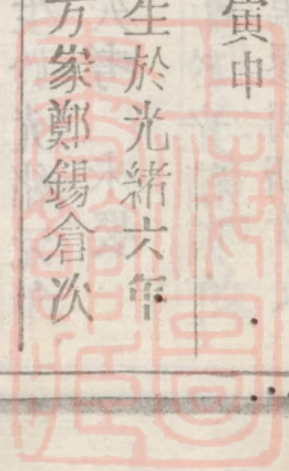 寅申
生於光緒六年
方家鄭錫倉次